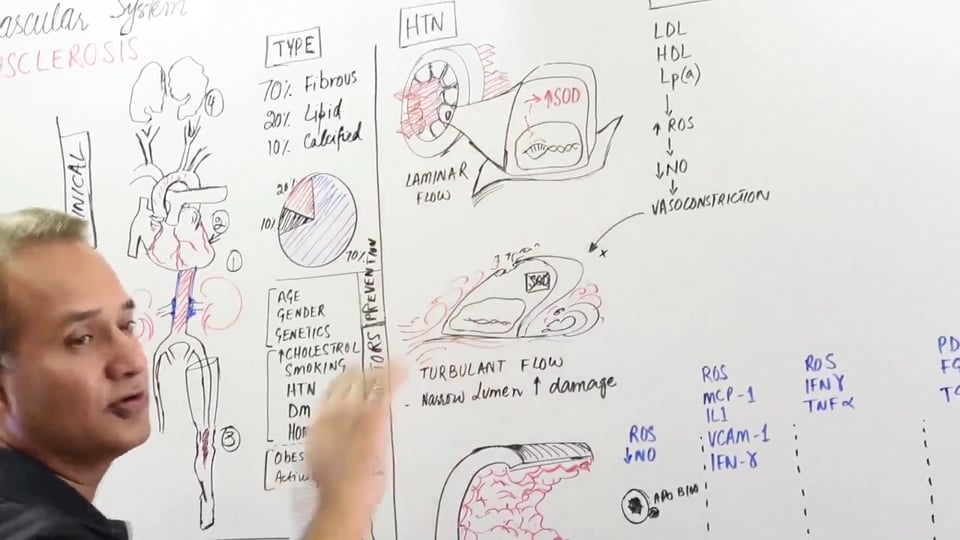 ascular System
OSCLEROSIS
TYPE
70% Fibrous
20% Lipid
10% Calcified
20%
10%
70%
INICAL
4
2
1
3
AGE
GENDER
GENETICS
↑CHOLESTROL
SMOKING
HTN
Dm
Ho
OBES
Activ
TORS PREVENTION
HTN
→ ↑SOD
LAMINAR
FLOW
SOD
TURBULANT FLOW
- Narrow Lumen ↑ damage
LDL
HDL
Lp(a)
↓
↑ ROS
↓
↓NO
↓
VASOCONSTRICTION
x
ROS
↓NO
APO B100
ROS
MCP-1
IL1
VCAM-1
IFN-γ
ROS
IFNγ
TNFα
PD
FG